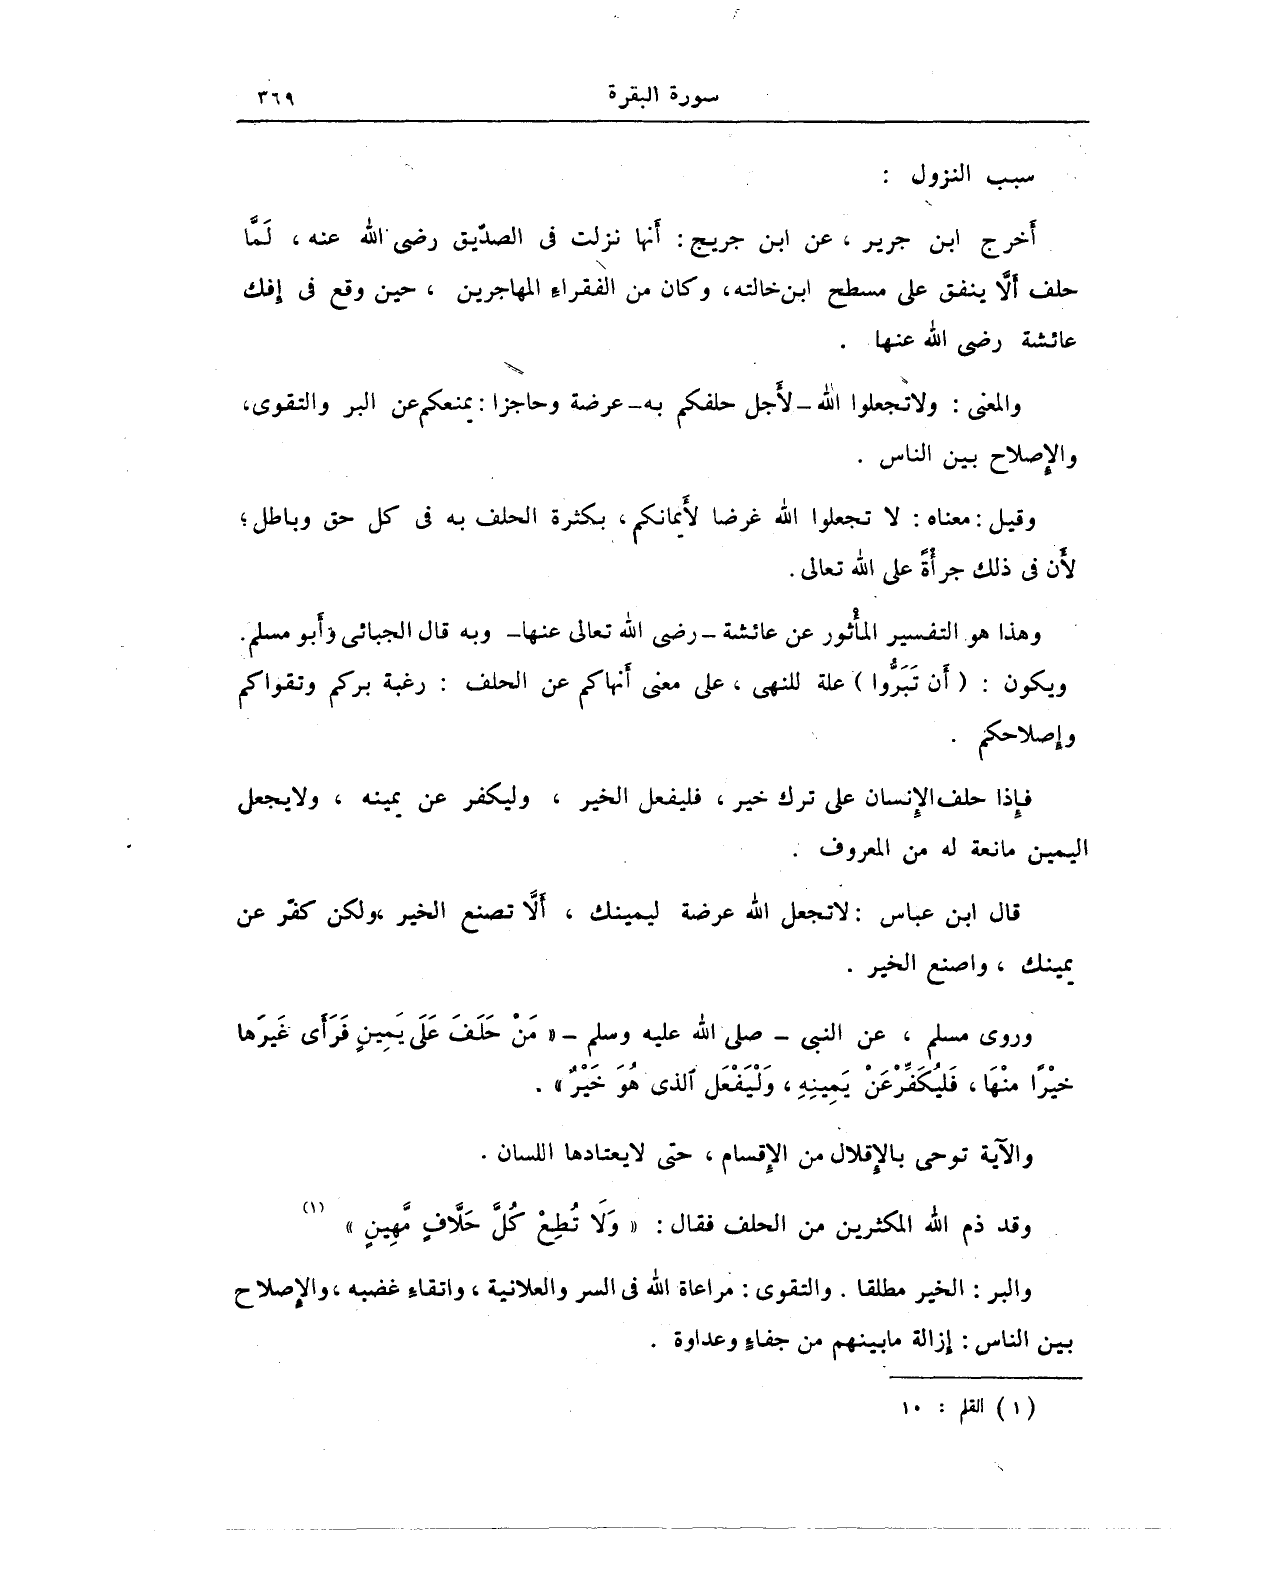 سورة البقرة ٣٦٩
سبب النزول :
أخرج ابن جرير ، عن ابن جريج : أنها نزلت فى الصدّيق رضى الله عنه ، لَمَّا
حلف ألَّا ينفق على مسطح ابن خالته، وكان من الفقراء المهاجرين ، حين وقع فى إفك
عائشة رضى الله عنها .
والمعنى : ولاتجعلوا الله – لأَجل حلفكم به – عرضة وحاجزا : يمنعكم عن البر والتقوى،
والإِصلاح بين الناس .
وقيل : معناه : لا تجعلوا الله غرضا لأَيمانكم ، بكثرة الحلف به فى كل حق وباطل ؛
لأَن فى ذلك جرأَةً على الله تعالى .
وهذا هو التفسير المأْثور عن عائشة – رضى الله تعالى عنها – وبه قال الجبائى وأَبو مسلم .
ويكون : ( أَن تَبَرُّوا ) علة للنهى ، على معنى أَنهاكم عن الحلف : رغبة بركم وتقواكم
وإِصلاحكم .
فإِذا حلف الإِنسان على ترك خير ، فليفعل الخير ، وليكفر عن يمينه ، ولايجعل
اليمين مانعة له من المعروف .
قال ابن عباس : لاتجعل الله عرضة ليمينك ، أَلَّا تصنع الخير ،ولكن كفّر عن
يمينك ، واصنع الخير .
وروى مسلم ، عن النبى – صلى الله عليه وسلم – « مَنْ حَلَفَ عَلَى يَمِينٍ فَرَأَى غَيرَها
خيْرًا منْهَا ، فَليُكَفِّرْ عَنْ يَمِينِهِ ، وَلْيَفْعَل ٱلذى هُوَ خَيْرٌ » .
والآية توحى بالإِقلال من الإِقسام ، حتى لايعتادها اللسان .
وقد ذم الله المكثرين من الحلف فقال : « وَلَا تُطِعْ كُلَّ حَلَّافٍ مَّهِينٍ » (١)
والبر : الخير مطلقا . والتقوى : مراعاة الله فى السر والعلانية ، واتقاء غضبه ، والإِصلاح
بين الناس : إزالة مابينهم من جفاءٍ وعداوة .
(١) القلم : ١٠